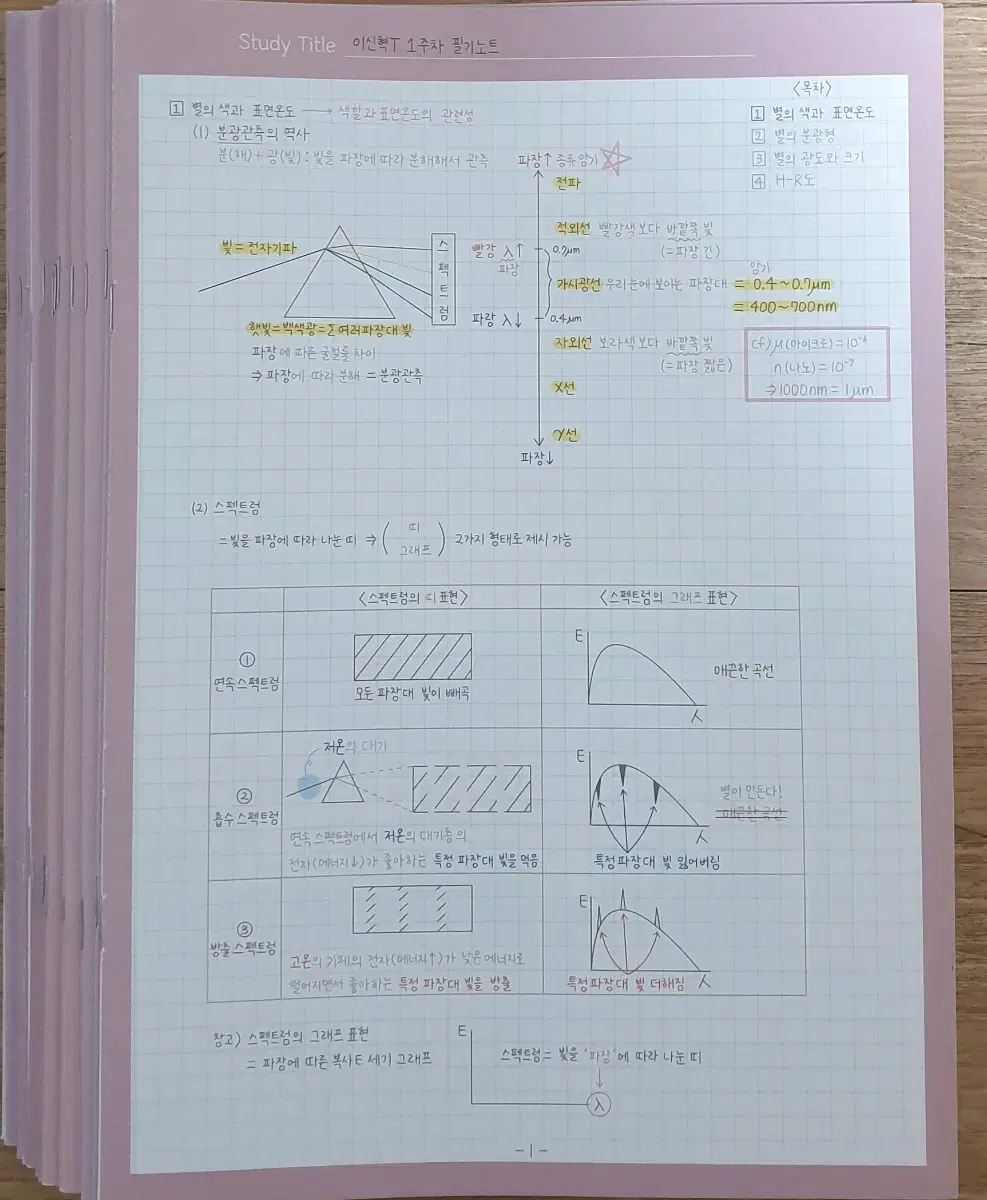 Study Title 이신혁T 1주차 필기노트
<목차>
1 별의 색과 표면온도
2 별의 분광형
3 별의 광도와 크기
4 H-R도
1 별의 색과 표면온도 → 색깔과 표면온도의 관련성
(1) 분광관측의 역사
분(해)+광(빛): 빛을 파장에 따라 분해해서 관측
파장↑ 종류암기
전파
적외선 빨강색보다 바깥쪽 빛
(=파장 긴)
빛=전자기파
스펙트럼
빨강 λ↑
파장
0.7μm
암기
가시광선 우리눈에 보이는 파장대 = 0.4~0.7μm
= 400~700nm
파랑 λ↓
0.4μm
햇빛=백색광=Σ여러파장대 빛
파장에 따른 굴절률 차이
⇒ 파장에 따라 분해 = 분광관측
자외선 보라색보다 바깥쪽 빛
(=파장 짧은)
cf) μ(마이크로)=10⁻⁶
n(나노)=10⁻⁹
⇒1000nm=1μm
X선
γ선
파장↓
(2) 스펙트럼
=빛을 파장에 따라 나눈 띠 ⇒ (띠 그래프) 2가지 형태로 제시 가능
<스펙트럼의 띠 표현> <스펙트럼의 그래프 표현>
①
연속스펙트럼
모든 파장대 빛이 빼곡
E
매끈한 곡선
λ
②
흡수스펙트럼
저온의 대기
연속 스펙트럼에서 저온의 대기층의
전자(에너지↓)가 좋아하는 특정 파장대 빛을 먹음
E
별이 만든다!
매끈한 곡선
λ
특정파장대 빛 잃어버림
③
방출스펙트럼
고온의 기체의 전자(에너지↑)가 낮은 에너지로
떨어지면서 좋아하는 특정 파장대 빛을 방출
E
특정파장대 빛 더해짐 λ
참고) 스펙트럼의 그래프 표현
= 파장에 따른 복사E 세기 그래프
E
스펙트럼= 빛을 '파장'에 따라 나눈 띠
λ
-1-